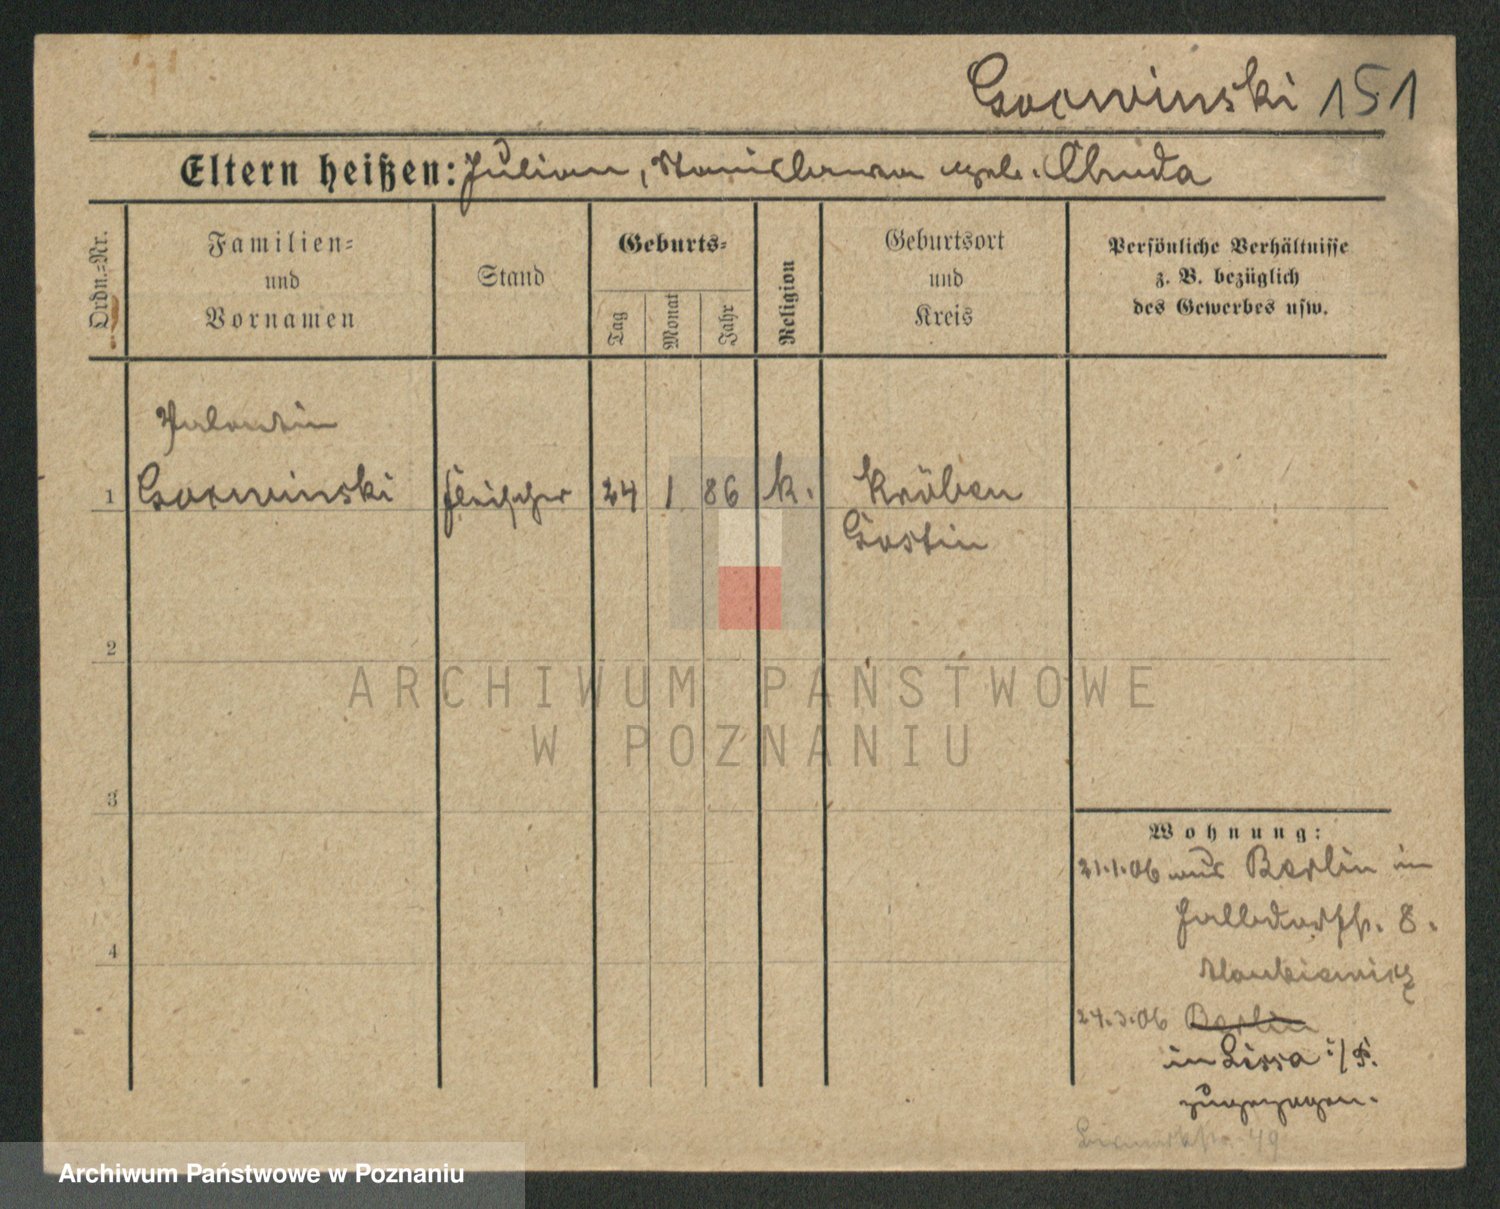 Gorwinski 151
Eltern heißen: Julian, Stanislawa geb. Chuda
Ordn.=Nr.
Familien=
und
Vornamen
Stand
Geburts=
Tag
Monat
Jahr
Religion
Geburtsort
und
Kreis
Persönliche Verhältnisse
z. B. bezüglich
des Gewerbes usw.
Valentin
1 Gorwinski Fleischer 24 1 86 k. Kröben
Gostin
2
ARCHIWUM PAŃSTWOWE
W POZNANIU
3
Wohnung:
21.1.06 aus Berlin in
8.
4
24.3.06 Berlin
in Lissa i/P.
zugezogen.
49
Archiwum Państwowe w Poznaniu